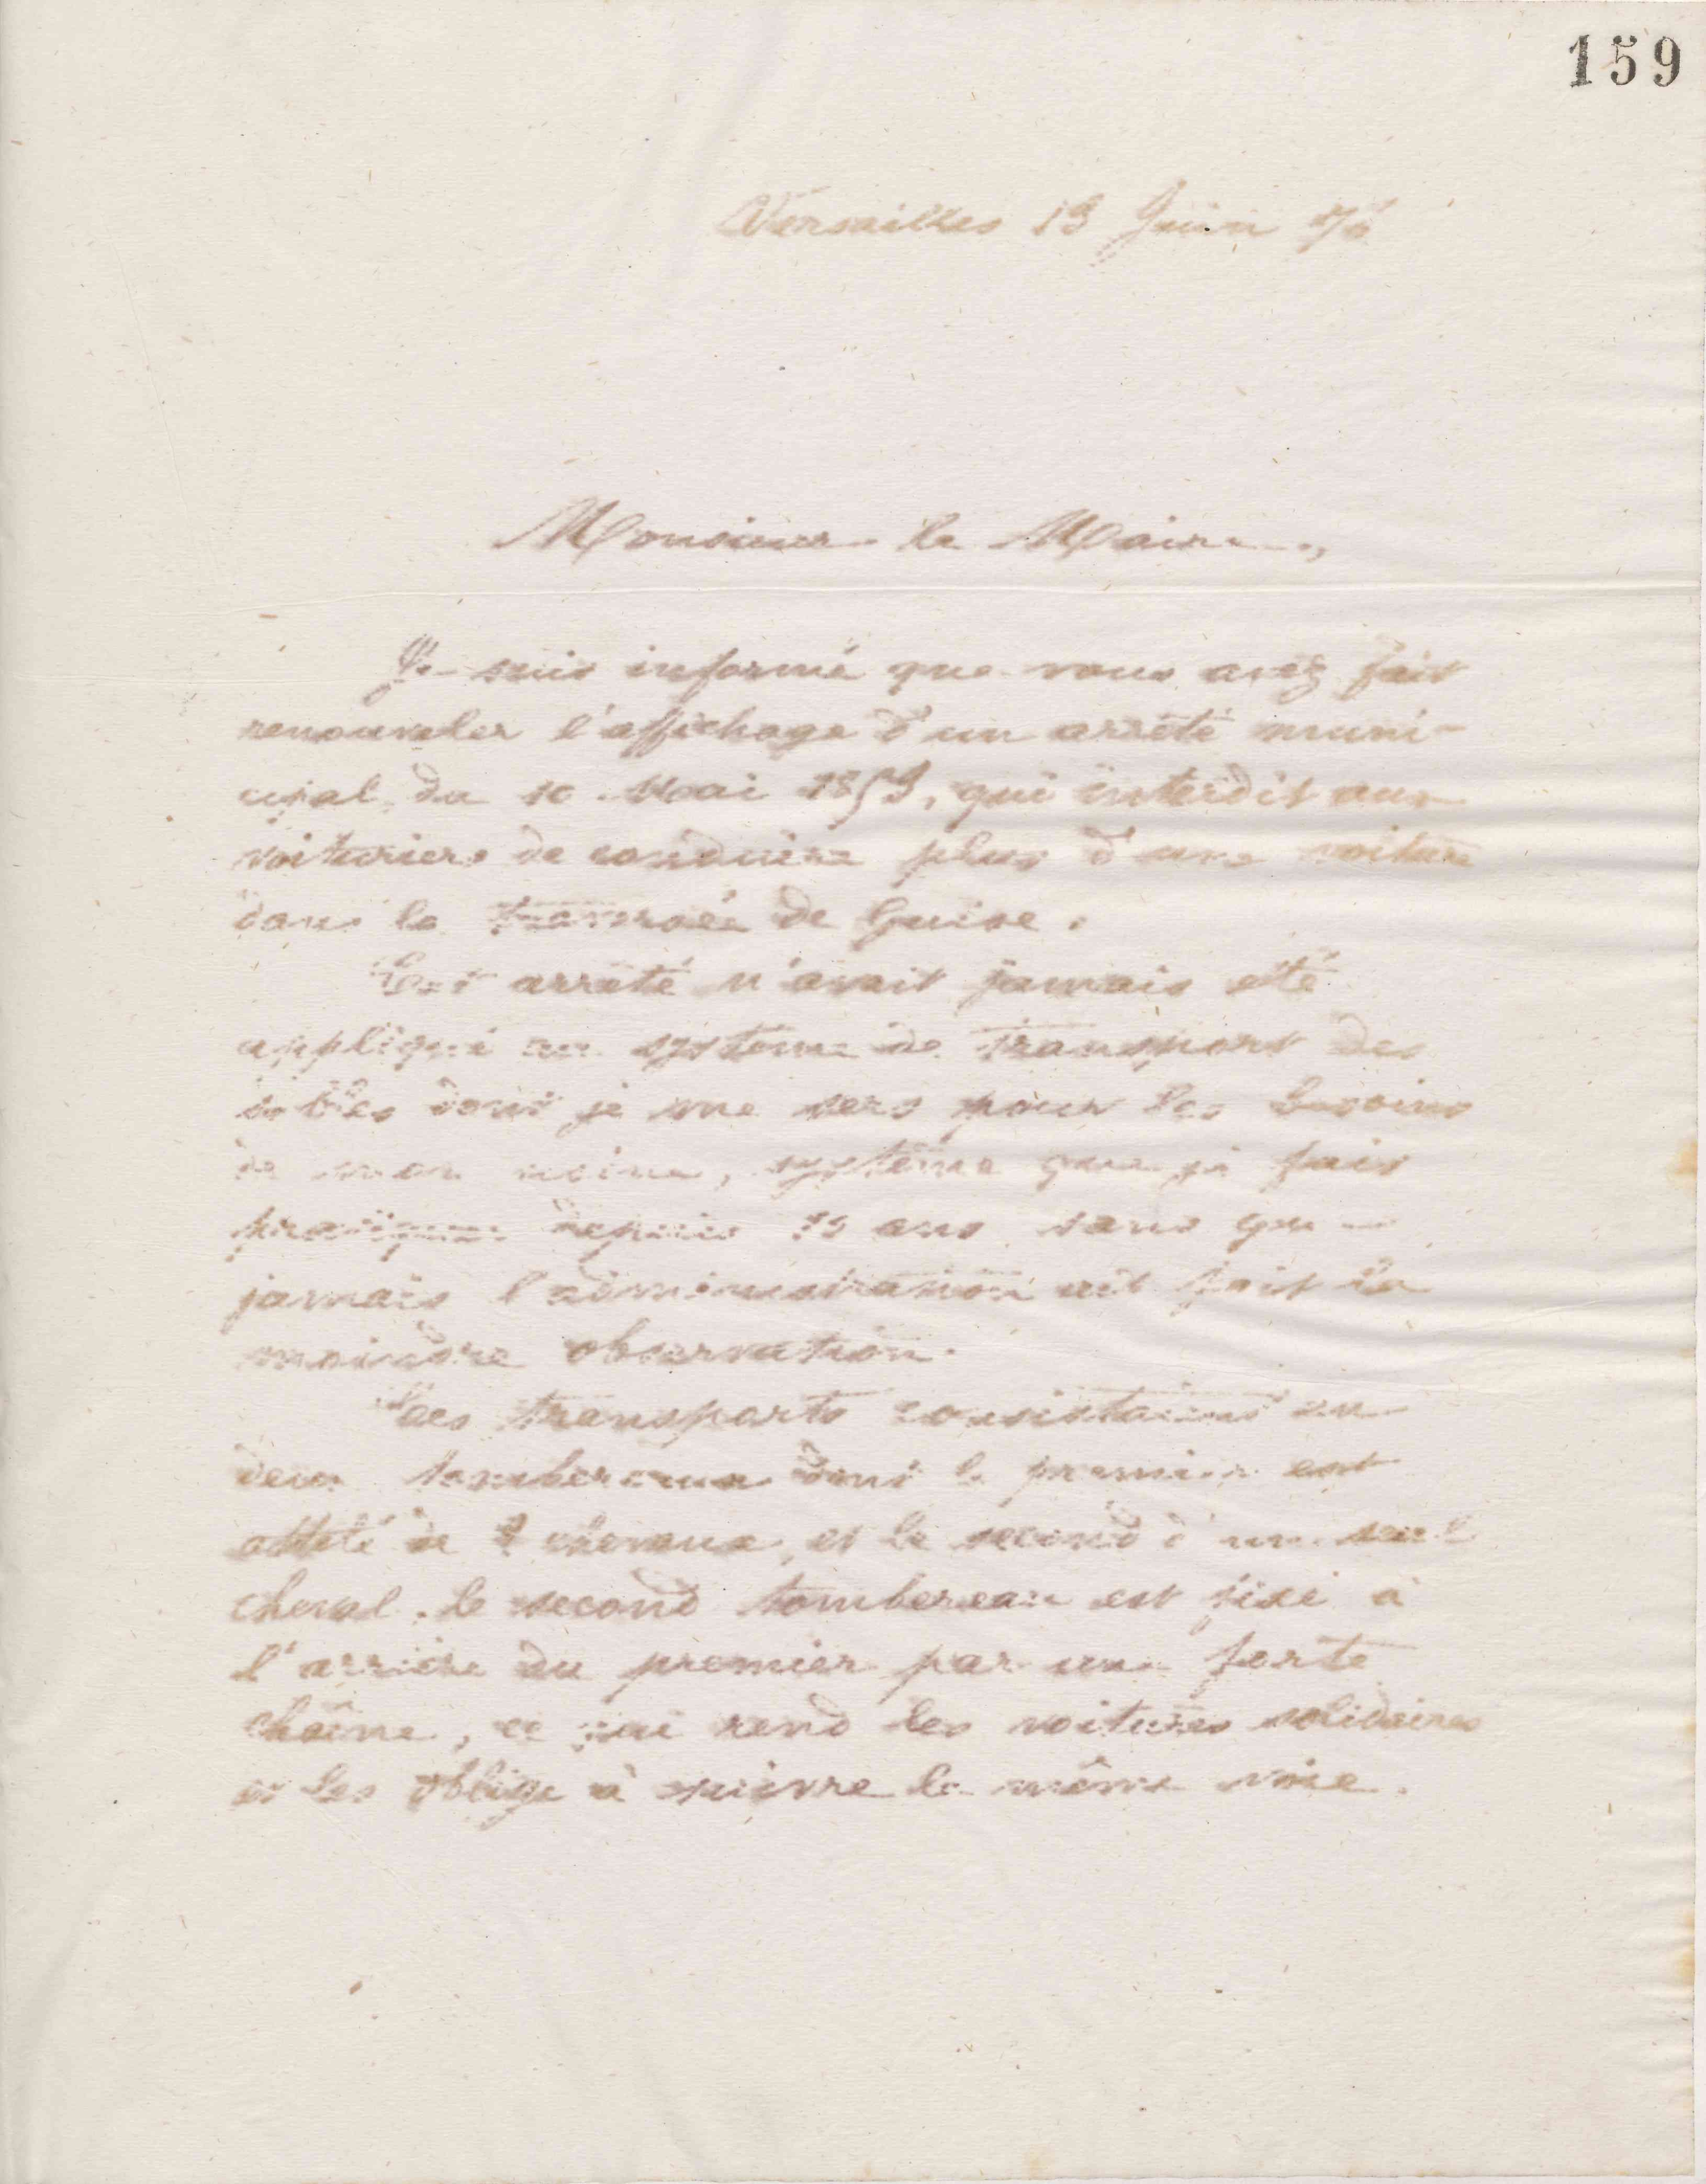 159
Versailles 13 Juin 76
Monsieur le Maire,
Je suis informé que vous avez fait
renouveler l'affichage d'un arrêté muni-
cipal du 10 Mai 1853, qui interdit aux
voituriers de conduire plus d'une voiture
dans la traversée de Guise.
Cet arrêté n'avait jamais été
appliqué au système de transport des
sables dont je me sers pour les besoins
de mon usine, système que je fais
pratiquer depuis 15 ans sans que
jamais l'administration ait fait la
moindre observation.
Ces transports consistaient en
deux tombereaux dont le premier est
attelé de 2 chevaux, et le second d'un seul
cheval. Le second tombereau est fixé à
l'arrière du premier par une forte
chaîne, ce qui rend les voitures solidaires
et les oblige à suivre la même voie.